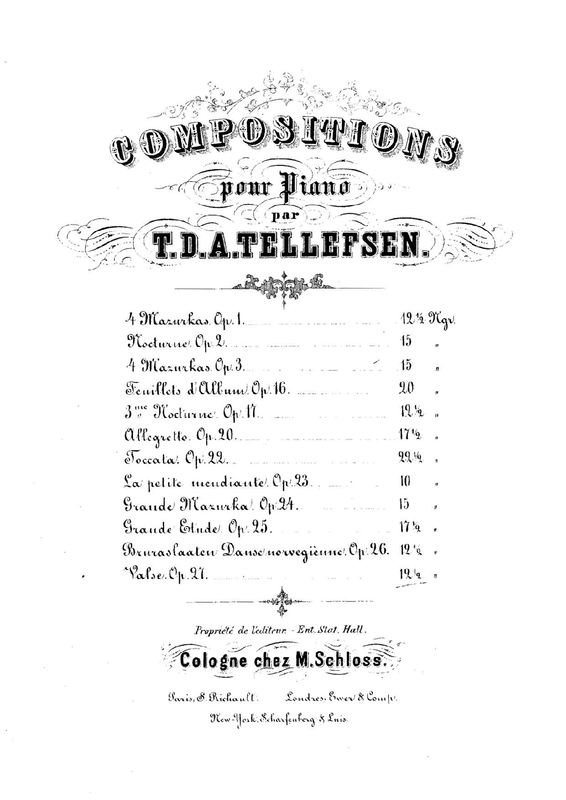 COMPOSITIONS
pour Piano
par
T.D.A.TELLEFSEN.
4 Mazurkas. Op. 1. 12½ Ngr.
Nocturne. Op. 2. 15 "
4 Mazurkas. Op. 3. 15 "
Feuillets d'Album. Op. 16. 20 "
3me Nocturne. Op. 17. 12½ "
Allegretto. Op. 20. 17½ "
Toccata. Op. 22. 22½ "
La petite mendiante. Op. 23. 10 "
Grande Mazurka. Op. 24. 15 "
Grande Etude. Op. 25. 17½ "
Bruraslaaten Danse norvegiènne. Op. 26. 12½ "
Valse. Op. 27. 12½ "
Propriété de l'editeur. - Ent. Stat. Hall.
Cologne chez M. Schloss.
Paris, S. Richault. Londres, Ewer & Comp.
New-York, Scharfenberg & Luis.